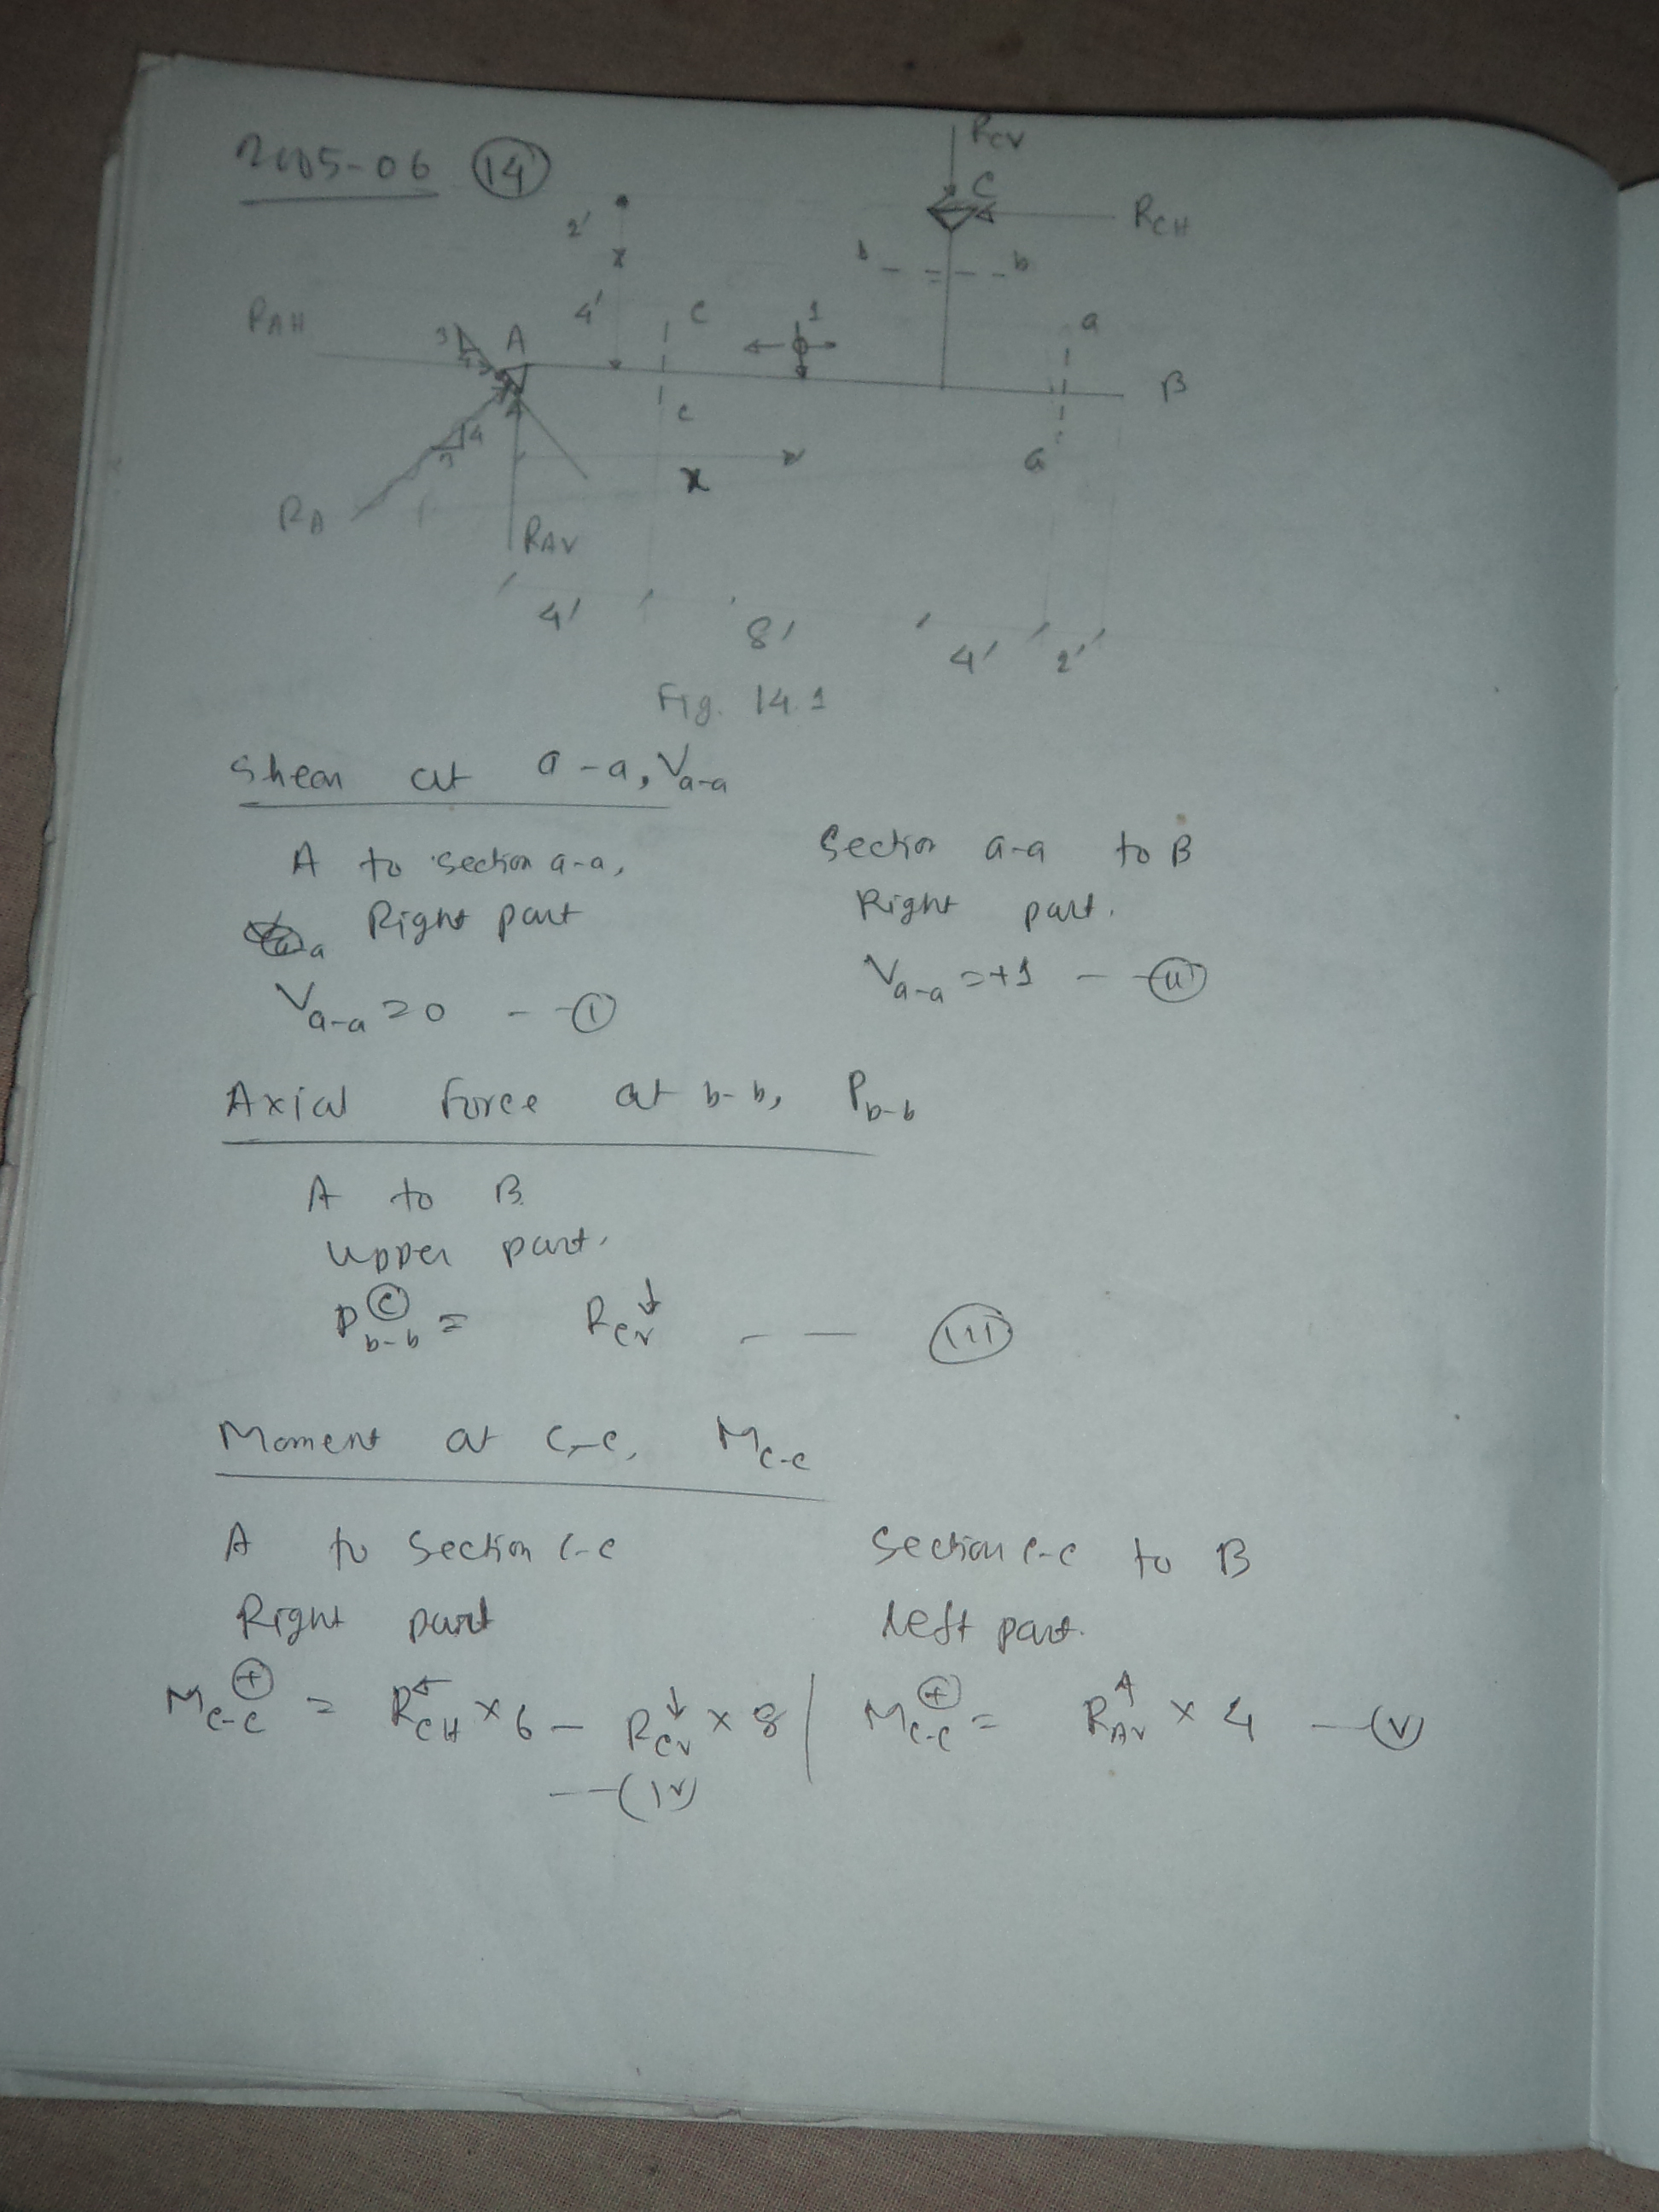 2005-06 (14)
RCV
C
RCH
2'
b - - - b
4'
C
1
a
RAH
3
4
A
B
c
4
3
a
x
RA
RAV
4' 8' 4' 2'
Fig. 14.1
Shear at a-a, Va-a
A to section a-a,
Right part
Va-a = 0 - - (i)
Section a-a to B
Right part.
Va-a = +1 - - (ii)
Axial Force at b-b, Pb-b
A to B
Upper part.
Pb-b (C) = RCV↓ - - (iii)
Moment at c-c, Mc-c
A to section c-c
Right part
Mc-c (+) = RCH← × 6 - RCV↓ × 8
—(iv)
Section c-c to B
left part.
Mc-c (+) = RAV↑ × 4 —(v)